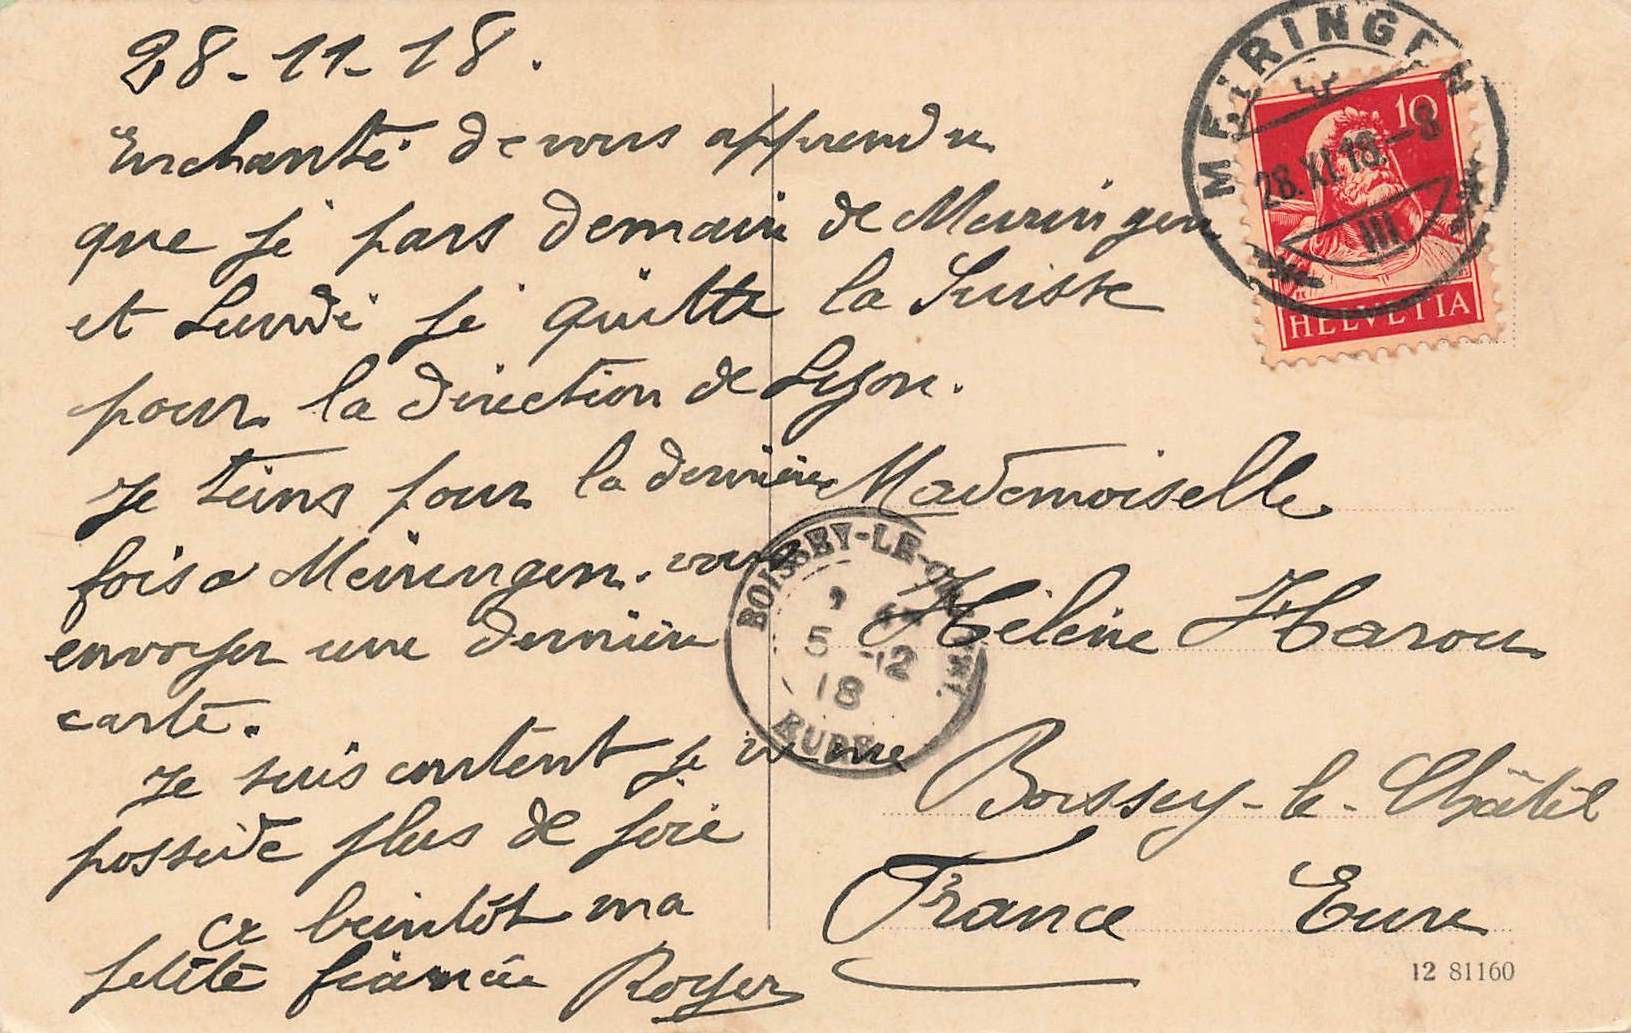 28-11-18.
Enchanté de vous apprendre
que je pars demain de Meiringen
et Lundi je quitte la Suisse
pour la direction de Lyon.
Je tiens pour la dernière
fois a Meiringen. vous
envoyer une dernière
carte.
Je suis content je ne me
possède plus de joie
a bientôt ma
petite fiancée Royer
MEIRINGEN
28.XI.18.-8
III
10
HELVETIA
BOISSEY-LE-CHATEL
5 -12
18
EURE
Mademoiselle
Hélène Harou
Boissey-le-Châtel
France Eure
12 81160